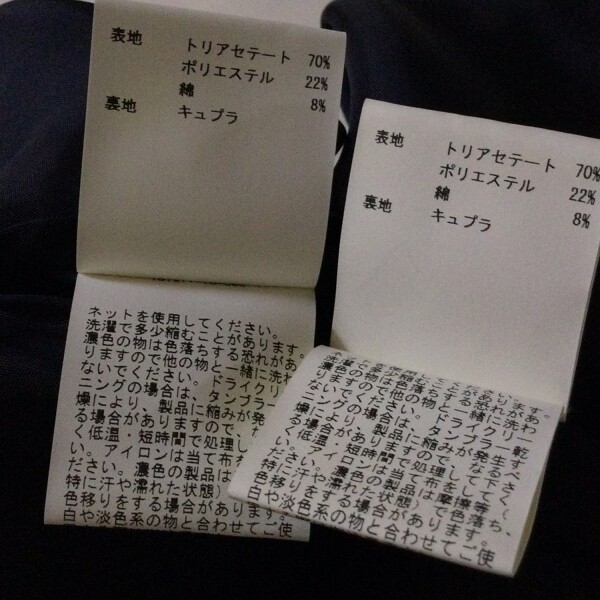 表地 トリアセテート 70%
ポリエステル 22%
綿 8%
裏地 キュプラ
ネットを使用してください。
洗濯で多少縮むことがあります。
濃色の物は色落ちする恐れがあ
りますので他の物と一緒に洗わ
ないでください。ドライクリ
ーニングの場合は、タンブラー
燥により、製品に縮みが発
る場合がありますので、
く低温・短時間で処理し
い。アイロンは当て布
ださい。濃色の製品は
特に汗や濡れた状態)
色移りをする場合があります
白や淡色系の物と合わせてご使
表地 トリアセテート 70%
ポリエステル 22%
綿 8%
裏地 キュプラ
濃色の物は色落ちする恐れがあ
りますので他の物と一緒に洗わ
ないでください。ドライクリー
ニングの場合は、タンブラー乾
燥により、製品に縮みが発生す
る場合がありますので、なるべ
く低温・短時間で処理して下さ
い。アイロンは当て布をしてく
ださい。濃色の製品は摩擦等(
特に汗や濡れた状態)で色落ち、
色移りをする場合があります。
白や淡色系の物と合わせてご使